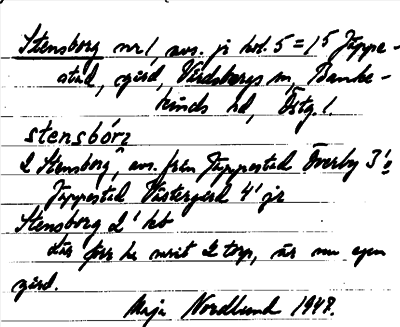 Stensborg nr 1, avs. jr kbl. 5 = 15 Jäppe-
stad, gård, Vårdsbergs sn, Banke-
kinds hd, Östg. l.
stensbórz
2 Stensborg, avs. från Jäppestad Överby 3
Jäppestad Västergård 4 jr
Stensborg 2 kb
Där förr har varit 2 torp, är nu egen
gård.
Maja Nordlund 1947.